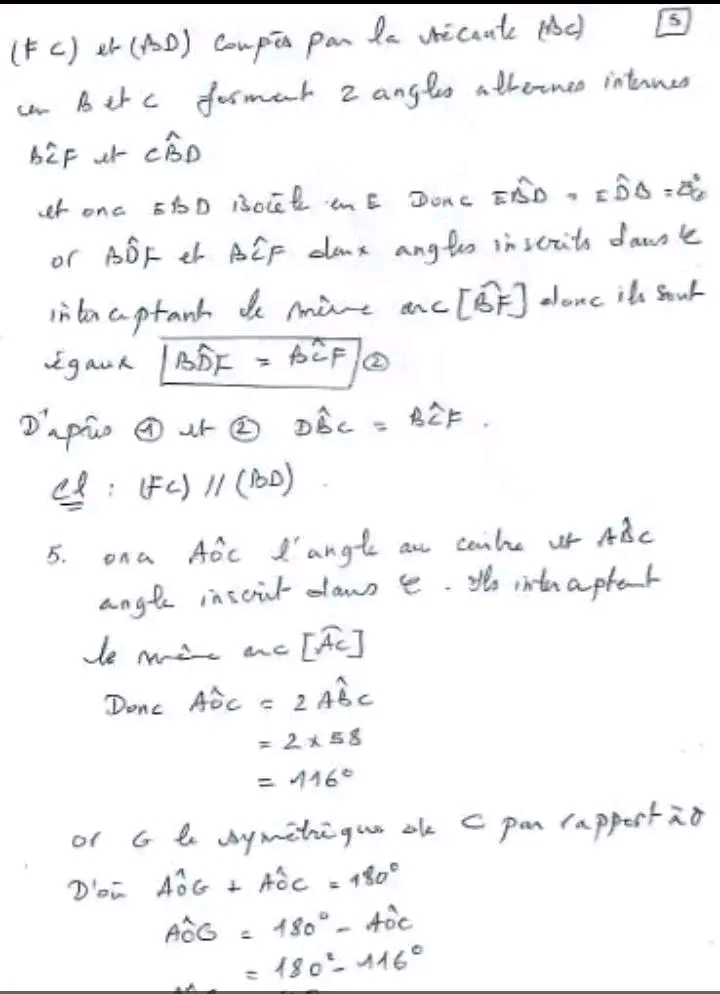 5
(FC) et (BD) coupés par la sécante (BC)
en B et C forment 2 angles alternes internes
BĈF et CB̂D
et on a EBD isocèle en E Donc EB̂D = ED̂B =
or BD̂F et BĈF deux angles inscrits dans C
interceptant le même arc [BF] donc ils sont
égaux BD̂F = BĈF ②
D'après ① et ② DB̂C = BĈF.
Cl : (FC) // (BD).
5. on a AÔC l'angle au centre et AB̂C
angle inscrit dans C. Ils interceptent
le même arc [AC]
Donc AÔC = 2 AB̂C
= 2 x 58
= 116°
or G le symétrique de C par rapport à O
D'où AÔG + AÔC = 180°
AÔG = 180° - AÔC
= 180° - 116°